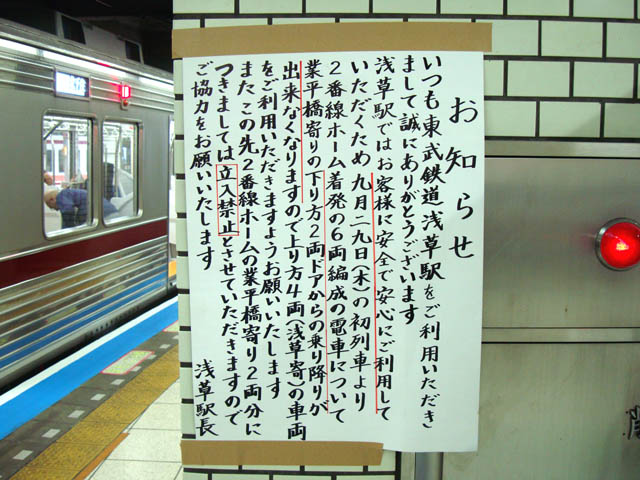 お知らせ
いつも東武鉄道浅草駅をご利用いただき
まして誠にありがとうございます
浅草駅ではお客様に安全で安心にご利用して
いただくため九月二九日(木)の初列車より
2番線ホーム着発の6両編成の電車について
業平橋寄りの下り方2両ドアからの乗り降りが
出来なくなりますので上り方4両(浅草寄)の車両
をご利用いただきますようお願いいたします
またこの先2番線ホームの業平橋寄り2両分に
つきましては立入禁止とさせていただきますので
ご協力をお願いいたします
浅草駅長